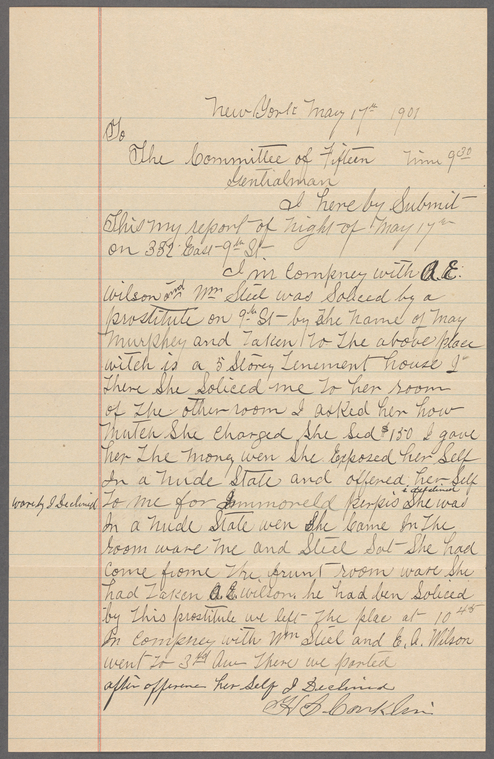 New York May 17th 1901
To
The Committee of Fifteen Time 9 30
Gentialman
I here by Submit
This my report of night of May 17th
on 332 East 9th St
I in Compney with A.E.
wilson and Wm Steel was Soliced by a
prostitute on 9th St by the name of May
Murphey and Taken To The above place
witch is a 5 Storey Tenement house
There She Soliced me To her room
of The other room I asked her how
mutch She Charged She Sed $1 50 I gave
her The Money wen She Exposed her Self
In a nude State and offered her Self
wareby I Declined To me for Immoreld perpis She was
In a nude State wen She Came In The
room ware me and Steel Sat She had
Come frome The frunt room ware She
had Taken A.E. wilson he had ben Soliced
by This prostitute we left The place at 10 45
In Compney with Wm Steel and E. A. Wilson
went To 3rd Ave There we parted
after offerene her Self I Declined
H S Conklin